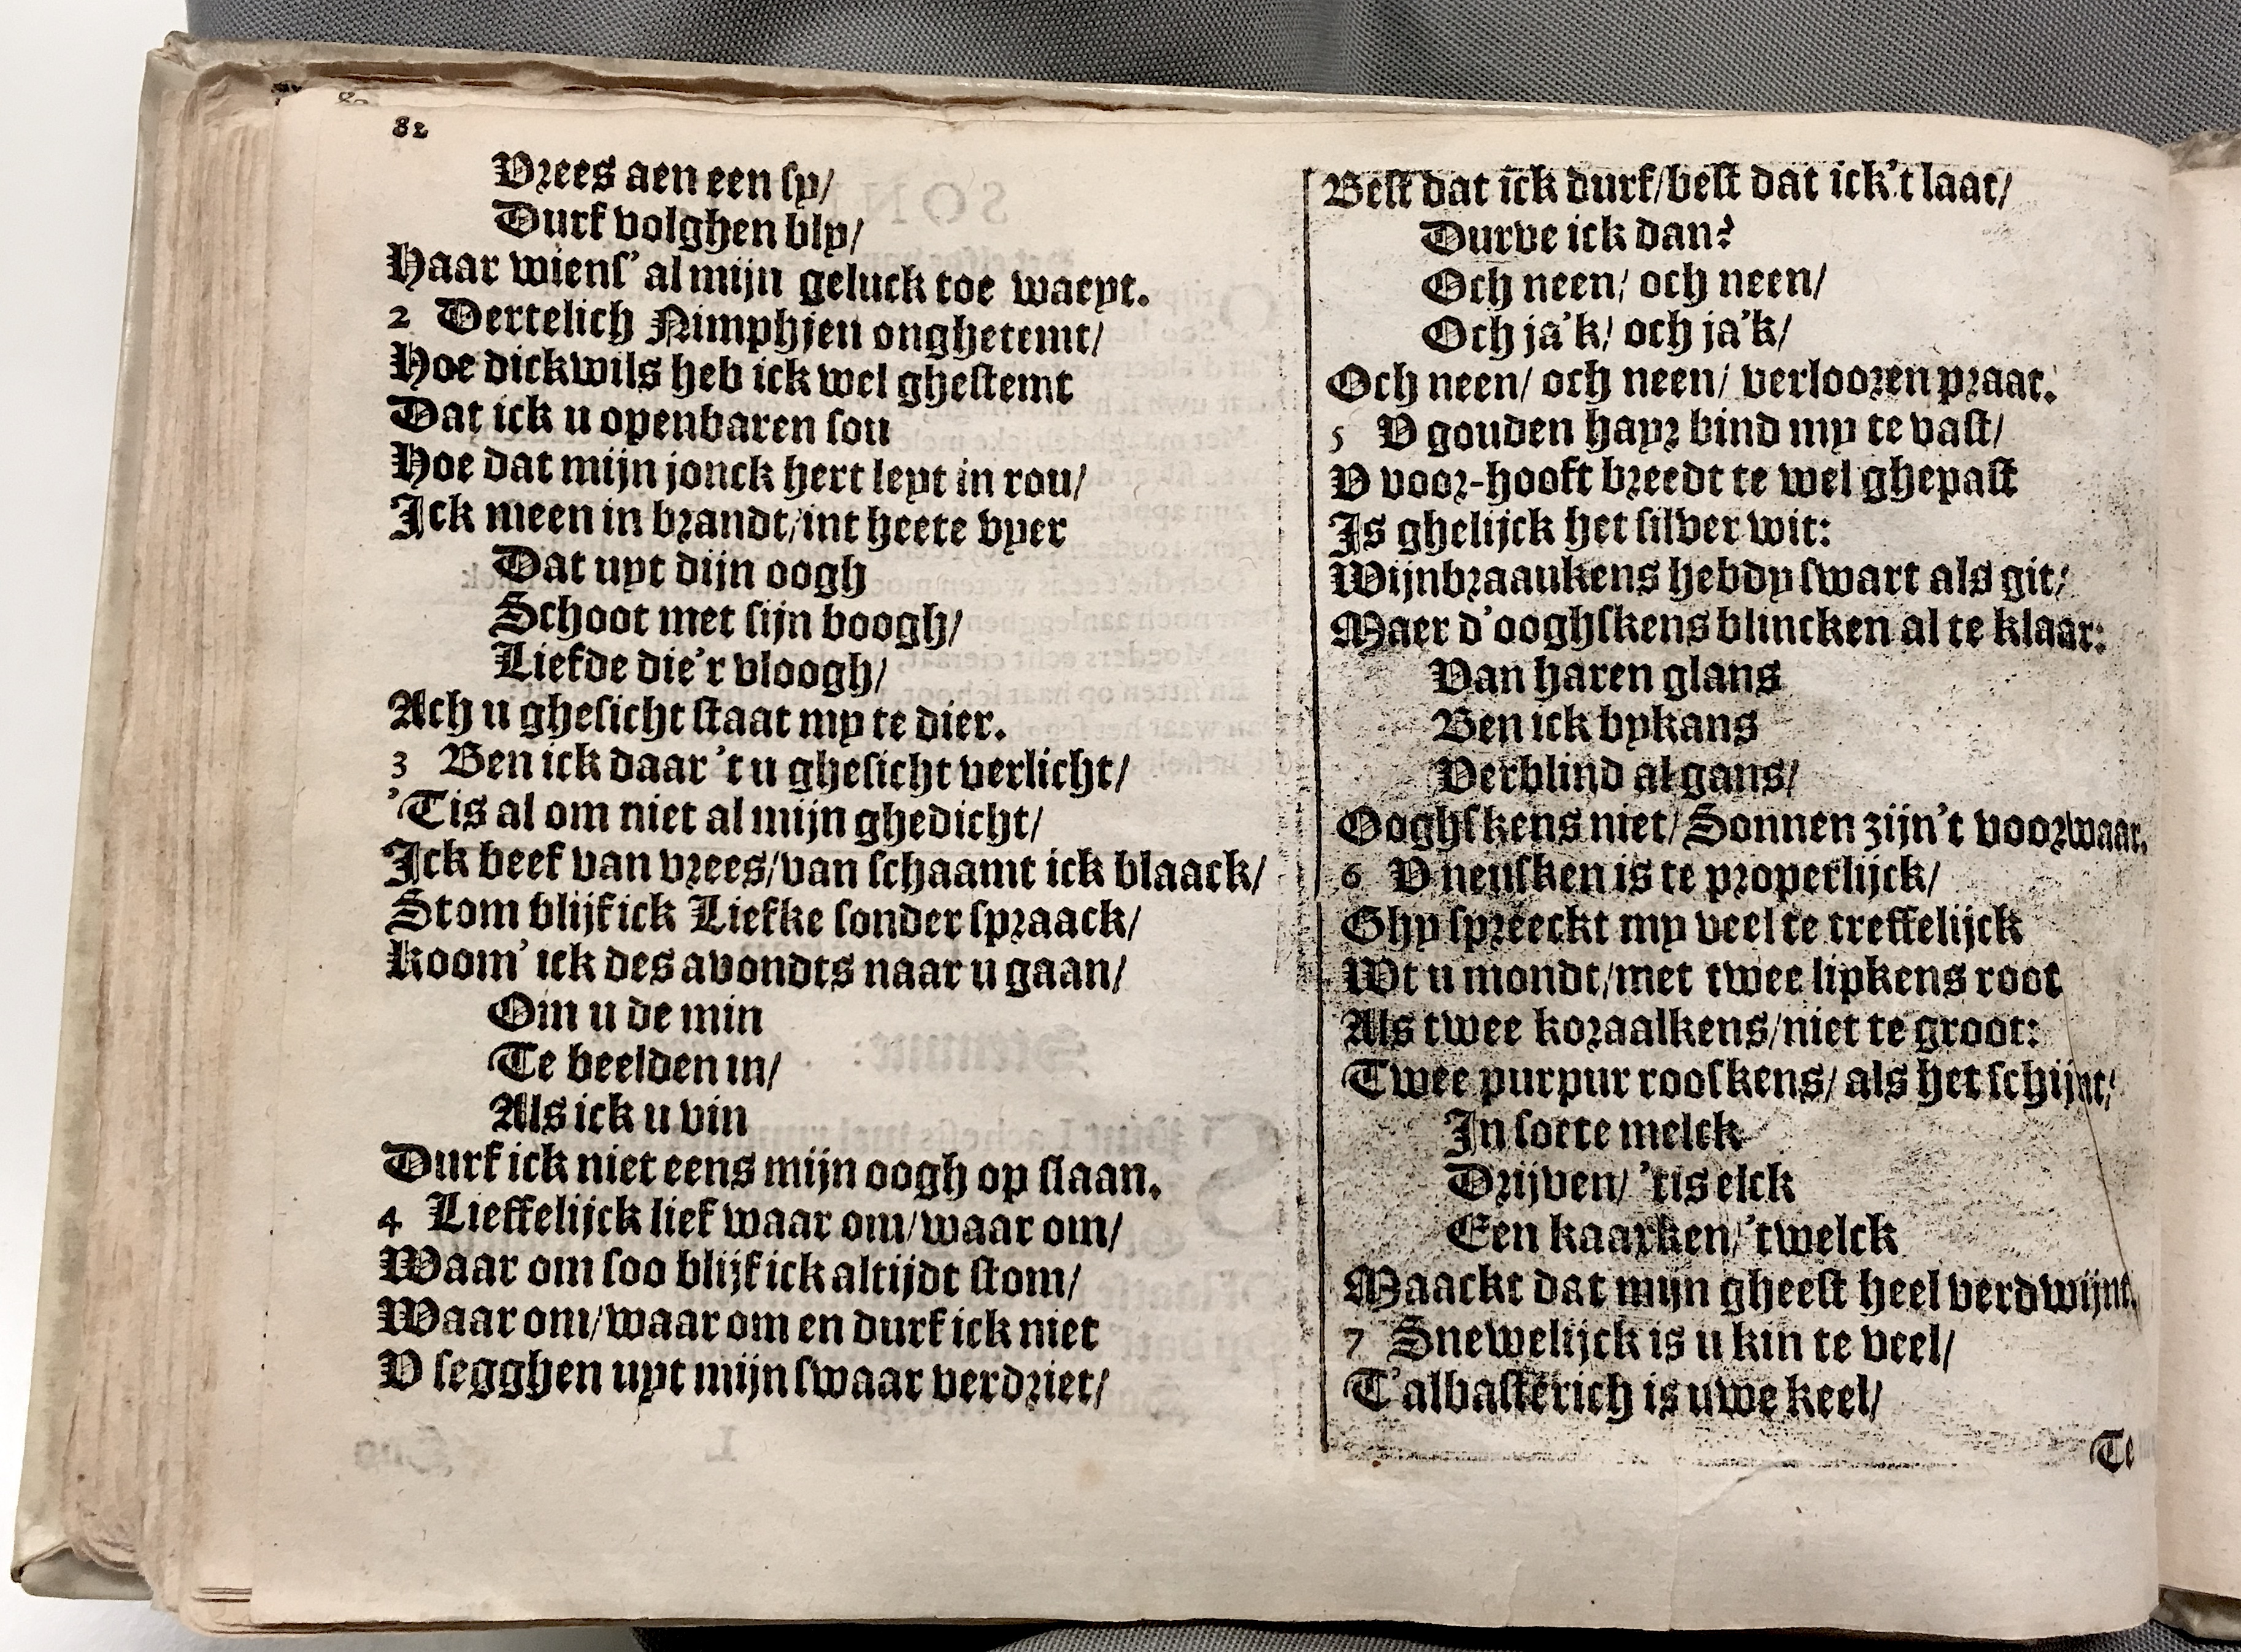 82
Vrees aen een sy/
Durf volghen bly/
Haar wiens' al mijn geluck toe waeyt.
2 Dertelich Nimphjen onghetemt/
Hoe dickwils heb ick wel ghestemt
Dat ick u openbaren sou
Hoe dat mijn jonck hert leyt in rou/
Ick meen in brandt/int heete vyer
Dat uyt dijn oogh
Schoot met sijn boogh/
Liefde die'r vloogh/
Ach u ghesicht staat my te dier.
3 Ben ick daar 't u ghesicht verlicht/
'Tis al om niet al mijn ghedicht/
Ick beef van vrees/van schaamt ick blaack/
Stom blijf ick Liefke sonder spraack/
Koom' ick des avondts naar u gaan/
Om u de min
Te beelden in/
Als ick u vin
Durf ick niet eens mijn oogh op slaan.
4 Lieffelijck lief waar om/waar om/
Waar om soo blijf ick altijdt stom/
Waar om/waar om en durf ick niet
V segghen uyt mijn swaar verdriet/
Best dat ick durf/best dat ick't laat/
Durve ick dan?
Och neen/ och neen/
Och ja'k/ och ja'k/
Och neen/ och neen/ verloozen praat.
5 V gouden hayr bind my te vast/
V voor-hooft breedt te wel ghepast
Is ghelijck het silver wit:
Wijnbraaukens hebdy swart als git/
Maer d'ooghskens blincken al te klaar:
Van haren glans
Ben ick bykans
Verblind al gans/
Ooghskens niet/Sonnen zijn't voorwaar.
6 V neusken is te properlijck/
Ghy spreeckt my veel te treffelijck
Wt u mondt/met twee lipkens root
Als twee koraalkens/niet te groot:
Twee purpur rooskens/ als het schijnt/
In soete melck
Drijven/ 'tis elck
Een kaarken/'twelck
Maackt dat mijn gheest heel verdwijnt.
7 Snewelijck is u kin te veel/
T'albasterich is uwe keel/
Te